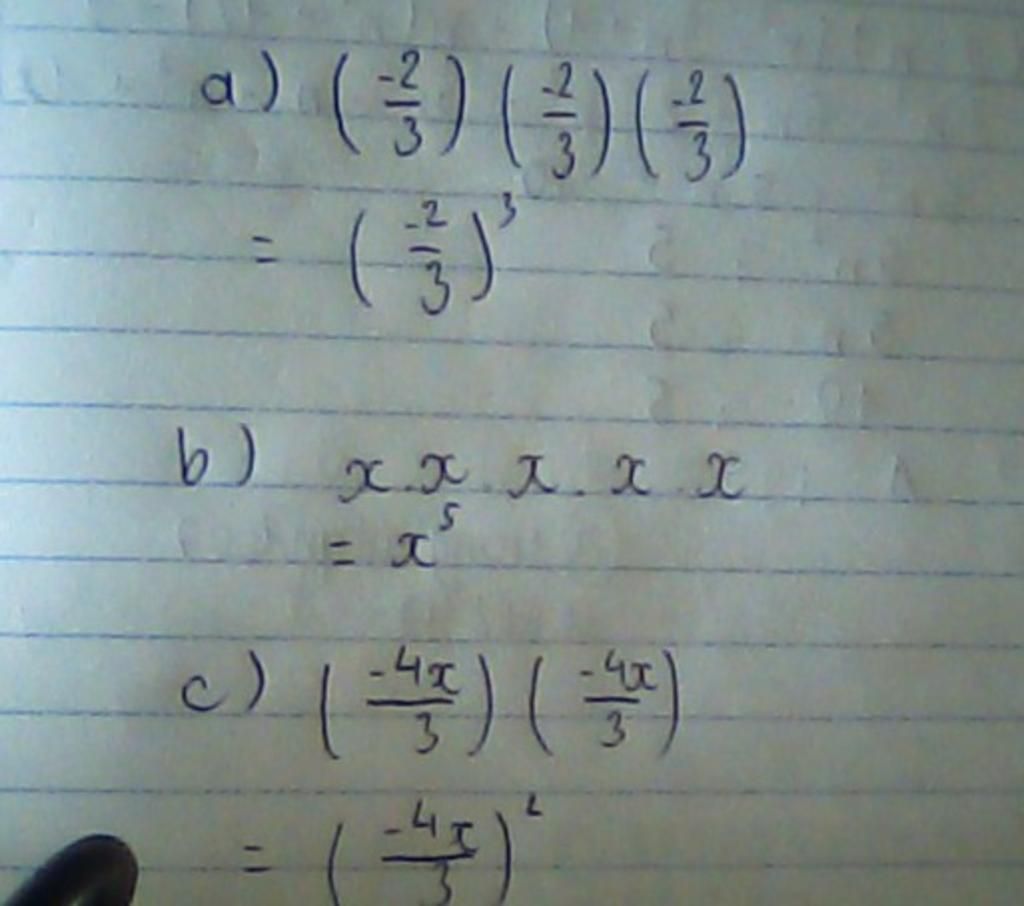 a) (-2/3) (-2/3) (-2/3)
= (-2/3)³
b) x . x . x . x . x
= x⁵
c) (-4x/3) (-4x/3)
= (-4x/3)²